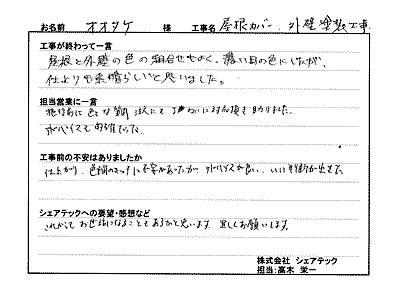 お名前 オオタケ 様 工事名 屋根カバー、外壁塗装工事
工事が終わって一言
屋根と外壁の色の組合せもよく、濃い目の色にしたが、
仕上りも素晴らしいと思いました。
担当営業に一言
色々な質問
ていねいに対応頂き助かりました。
アドバイスも
工事前の不安はありましたか
仕上がり、色調のマッチに不安があったが アドバイスが良い、いい
シェアテックへの要望・感想など
これからもお世話になることもあるかと思います。宜しくお願いします。
株式会社 シェアテック
担当:高木 栄一